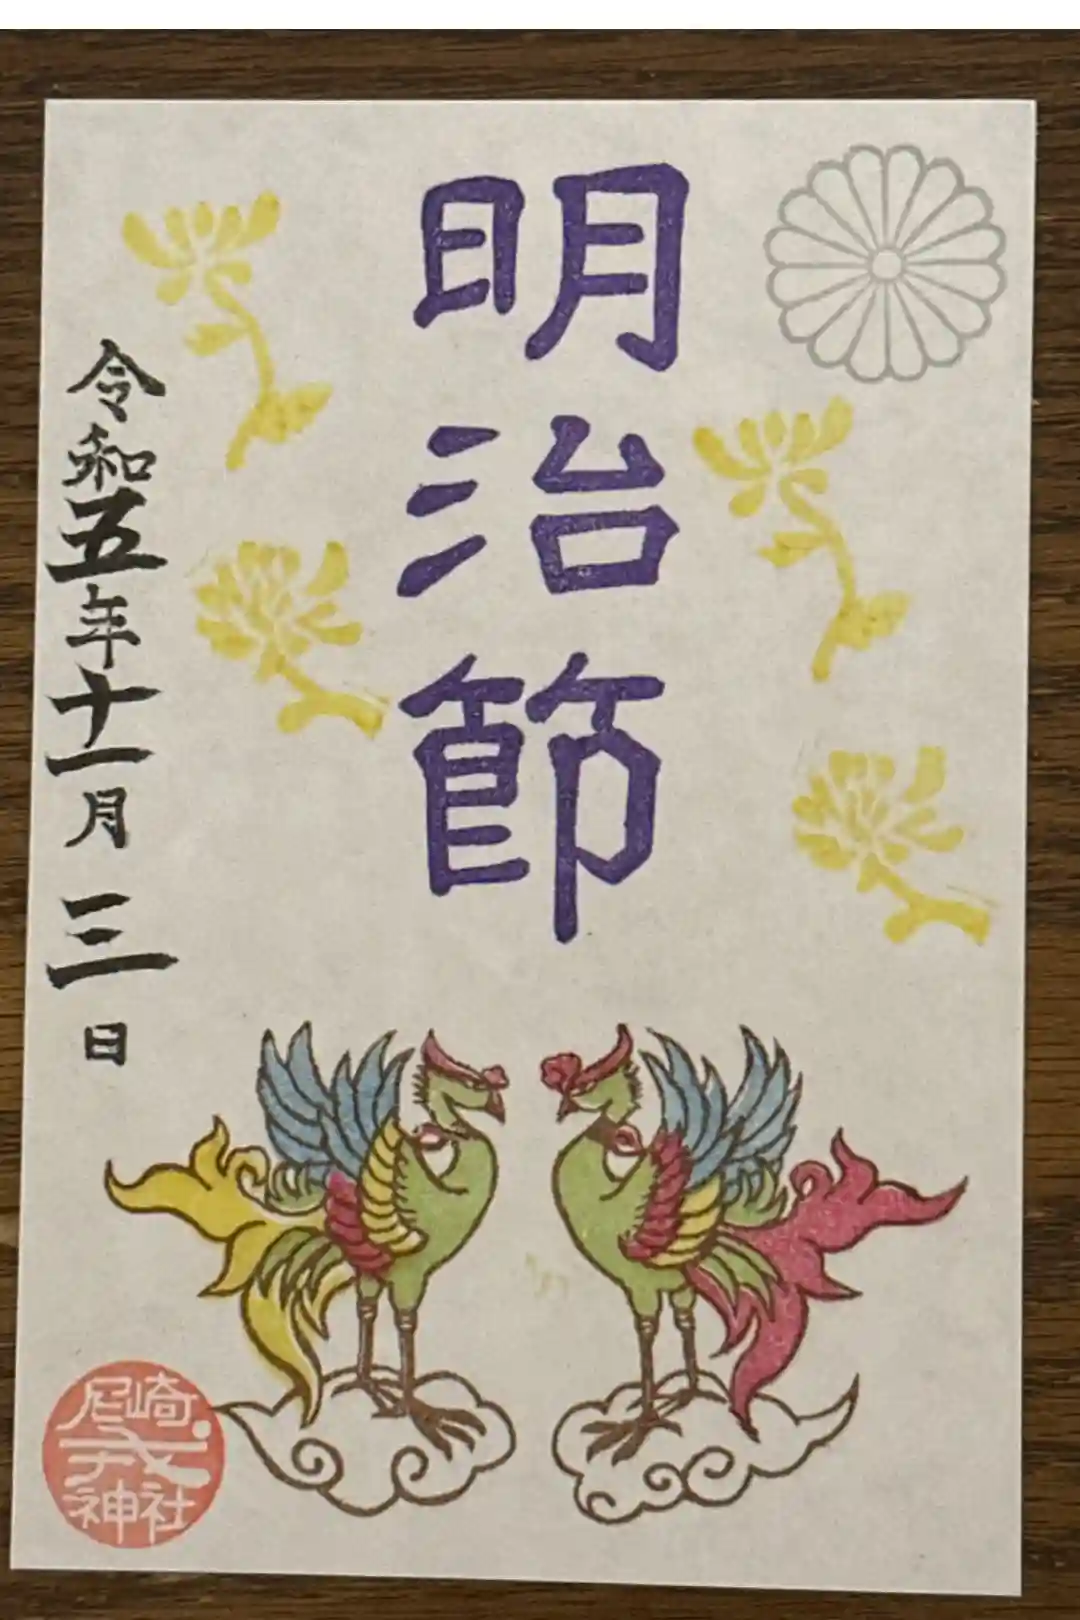 明治節
令和五年十一月三日
尼崎
戎
神社